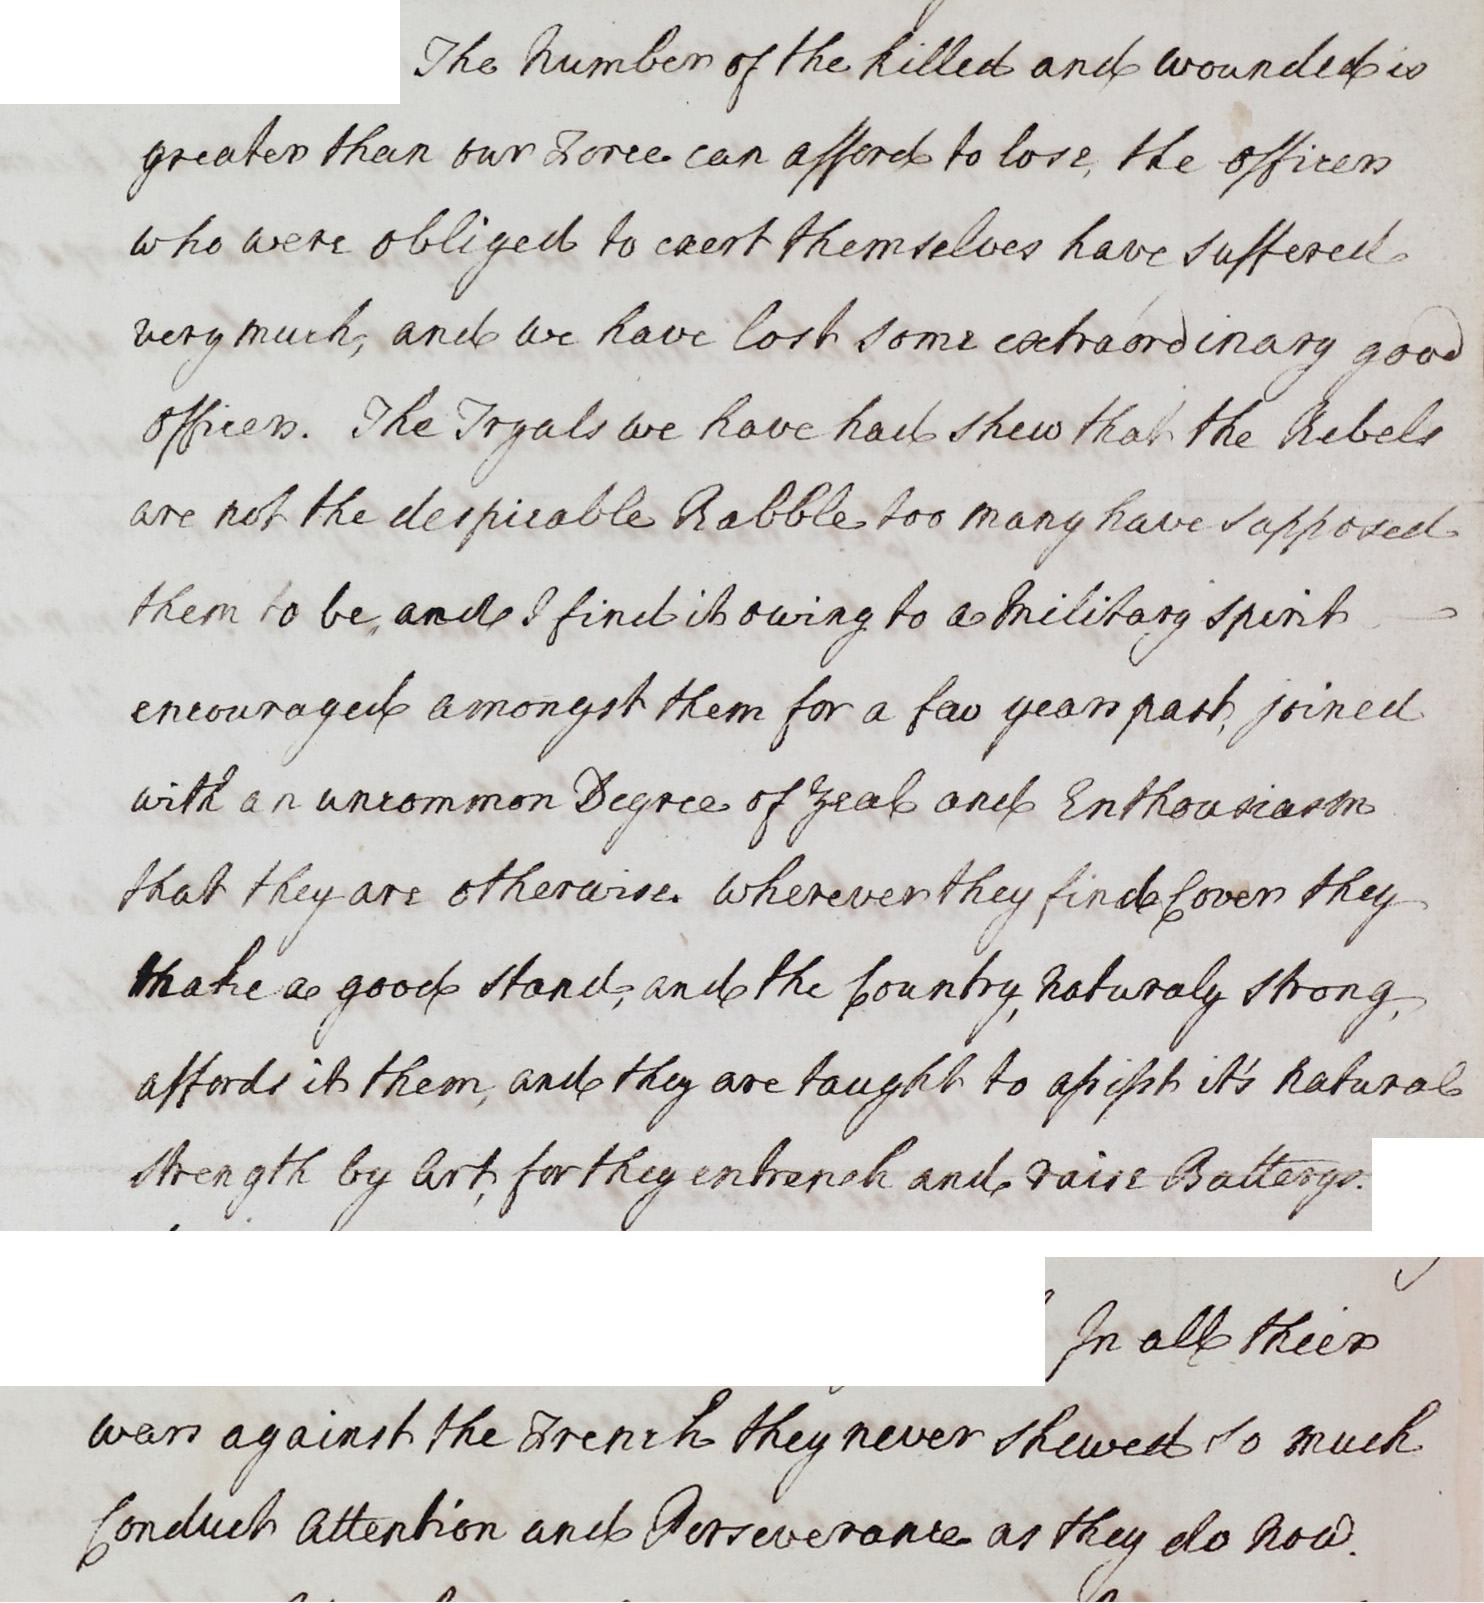 The Number of the killed and wounded is
greater than our Force can afford to lose, the officers
who were obliged to exert themselves have suffered
very much, and we have lost some extraordinary good
officers. The Tryals we have had shew that the Rebels
are not the despicable Rabble too many have supposed
them to be, and I find it owing to a Military spirit
encouraged amongst them for a few years past, joined
with an uncommon Degree of Zeal and Enthousiasm
that they are otherwise. wherever they find Cover they
make a good stand, and the Country, Naturaly strong,
affords it them, and they are taught to assist it's Natural
strength by Art, for they entrench and raise Batterys.
In all their
wars against the French they never shewed so much
Conduct Attention and Perseverance as they do now.